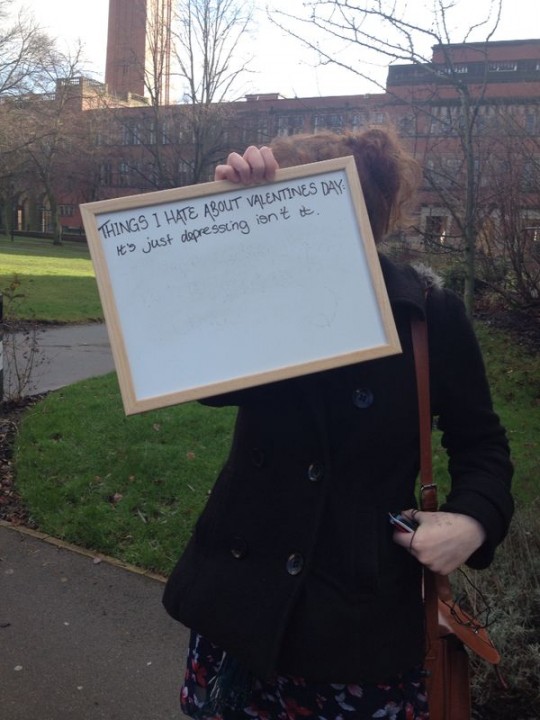 THINGS I HATE ABOUT VALENTINES DAY:
It's just depressing isn't it.